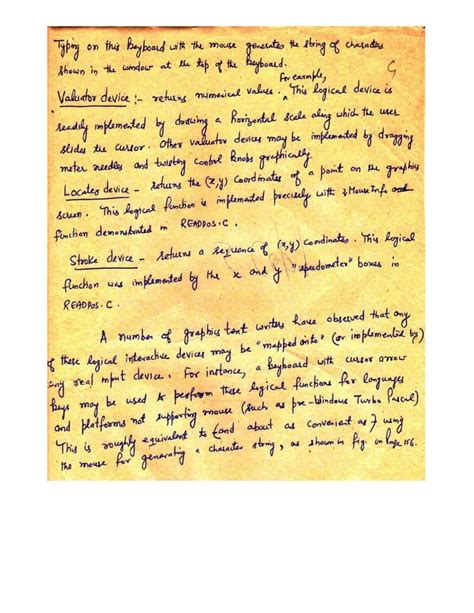 Typing on this keyboard with the mouse generates the string of characters
shown in the window at the top of the keyboard.
For example,
Valuator device :- returns numerical values. ^ This logical device is
readily implemented by drawing a horizontal scale along which the user
slides the cursor. Other valuator devices may be implemented by dragging
meter needles and twisting control knobs graphically.
Locator device - returns the (x,y) coordinates of a point on the graphics
screen. This logical function is implemented precisely with MouseInfo
function demonstrated in READPOS.C.
Stroke device - returns a sequence of (x,y) coordinates. This logical
function was implemented by the x and y "speedometer" boxes in
READPOS.C.
A number of graphics text writers have observed that any
of these logical interactive devices may be "mapped onto" (or implemented by)
any real input device. For instance, a keyboard with cursor arrow
keys may be used to perform these logical functions for languages
and platforms not supporting mouse (such as pre-Windows Turbo Pascal)
This is roughly equivalent to {and about as convenient as} using
the mouse for generating a character string, as shown in fig. on Page 156.